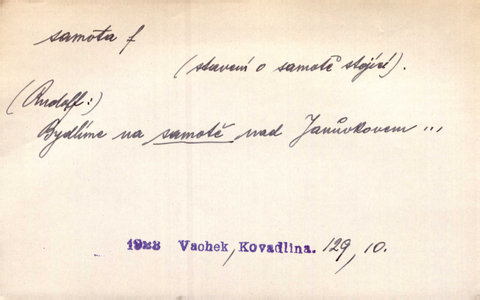 samota f
(stavení o samotě stojící).
(Rudolf:)
Bydlíme na samotě nad Janůvkovem ...
1923 Vachek, Kovadlina. 129, 10.